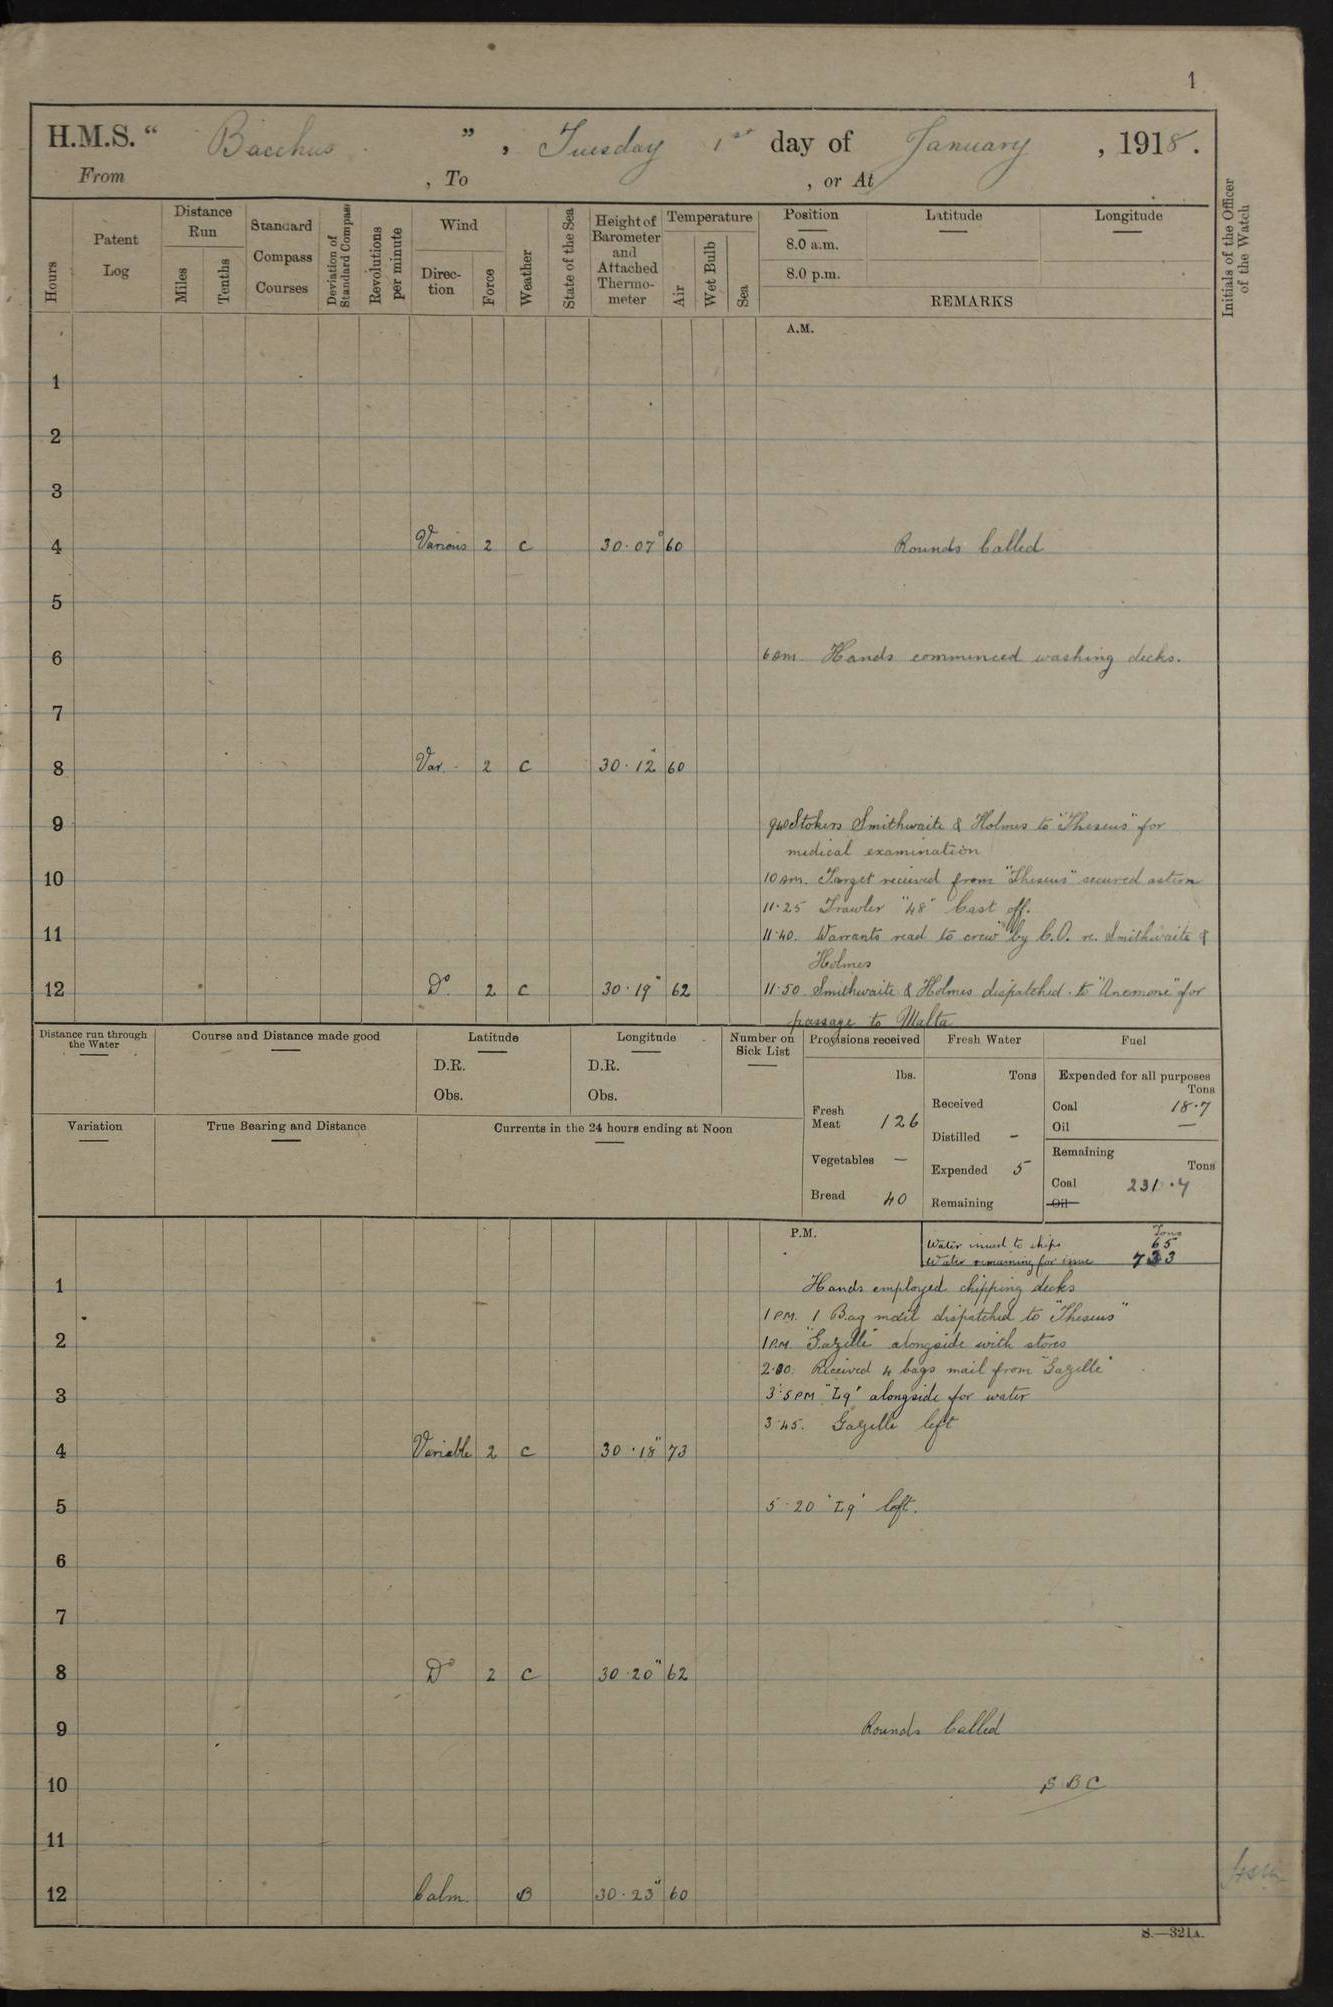 1
H.M.S. “ Bacchus ”, Tuesday 1st day of January, 1918.
From , To , or At
Hours
Patent Log
Distance Run
Miles
Tenths
Standard Compass Courses
Deviation of Standard Compass
Revolutions per minute
Wind
Direction
Force
Weather
State of the Sea
Height of Barometer and Attached Thermometer
Temperature
Air
Wet Bulb
Sea
Position Latitude Longitude
8.0 a.m.
8.0 p.m.
REMARKS
Initials of the Officer of the Watch
A.M.
1
2
3
4 Various 2 C 30.07" 60 Rounds Called
5
6 6 am Hands commenced washing decks.
7
8 Var. 2 C 30.12" 60
9 Stokers Smithwaite & Holmes to "Theseus" for
medical examination
10 10 am. Target received from "Theseus" secured astern
11.25 Trawler "48" Cast off.
11 11.40. Warrants read to crew by C.O. re. Smithwaite &
Holmes
12 Do 2 C 30.19" 62 11.50 Smithwaite & Holmes dispatched to "Anemone" for
passage to Malta
Distance run through the Water
Course and Distance made good
Latitude
D.R.
Obs.
Longitude
D.R.
Obs.
Number on Sick List
Provisions received
lbs.
Fresh Meat 126
Vegetables —
Bread 40
Fresh Water
Tons
Received
Distilled -
Expended 5
Remaining
Fuel
Expended for all purposes
Tons
Coal 18.7
Oil —
Remaining
Tons
Coal 231.7
Oil
Variation
True Bearing and Distance
Currents in the 24 hours ending at Noon
P.M.
Tons
Water issued to ships 65
Water remaining for issue 733
1 Hands employed chipping decks
1 PM. 1 Bag mail dispatched to "Theseus"
2 1 P.M. "Gazelle" alongside with stores
2.30. Received 4 bags mail from "Gazelle"
3 3.5 PM "L9" alongside for water
3.45. Gazelle left
4 Variable 2 C 30.18" 73
5 5.20 "L9" left.
6
7
8 Do 2 C 30.20" 62
9 Rounds Called
10 S B C
11
12 Calm. B 30.23" 60
S.—321A.